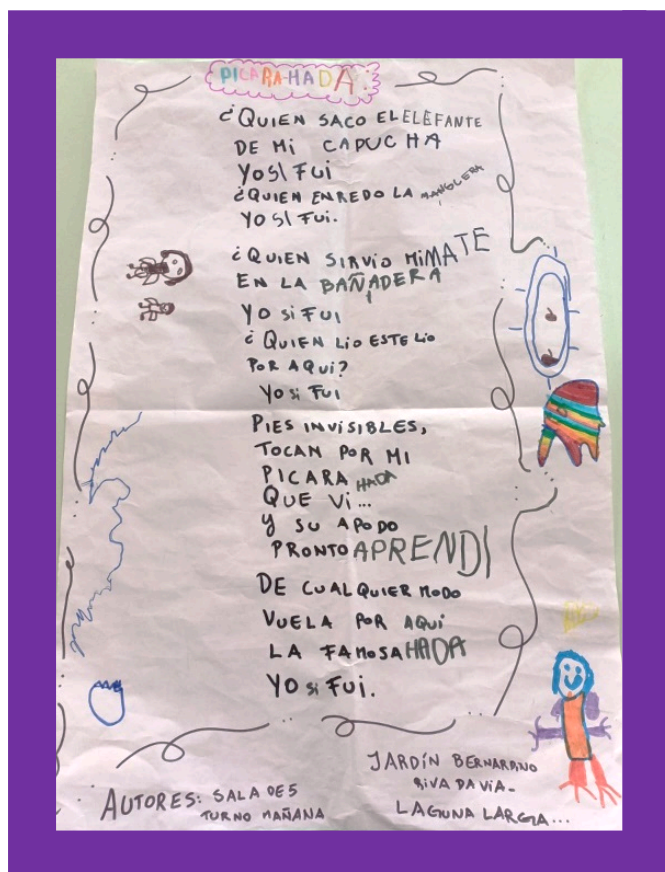 PICARA-HADA:
¿QUIEN SACO EL ELEFANTE
DE Mi CAPUCHA
YO SI FUi
¿QUIEN ENREDO LA MANGUERA
YO SI FUi.
¿QUIEN SIRViO MI MATE
EN LA BAÑADERA
YO Si FUI
¿QUIEN LiO ESTE LiO
POR AQUi?
YO Si FUI
PIES INViSIBLES,
TOCAN POR MI
PICARA HADA
QUE Vi...
Y SU APODO
PRONTO APRENDI
DE CUALQUIER MODO
VUELA POR AQUi
LA FAMOSA HADA
YO Si FUi.
AUTORES: SALA DE 5
TURNO MAÑANA
JARDÍN BERNARDINO
RIVADAVIA-
LAGUNA LARGA...